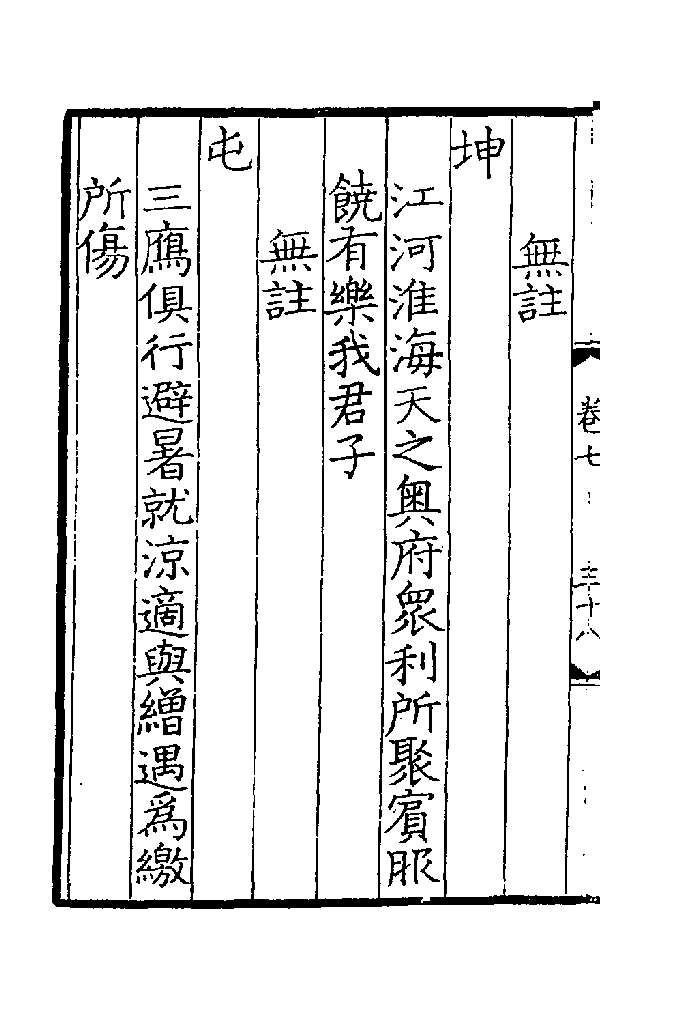 無註
坤
江河淮海天之奥府衆利所聚賔服
饒有樂我君子
無註
屯
三鴈俱行避暑就涼適與繒遇為繳
所傷
卷七
三十八